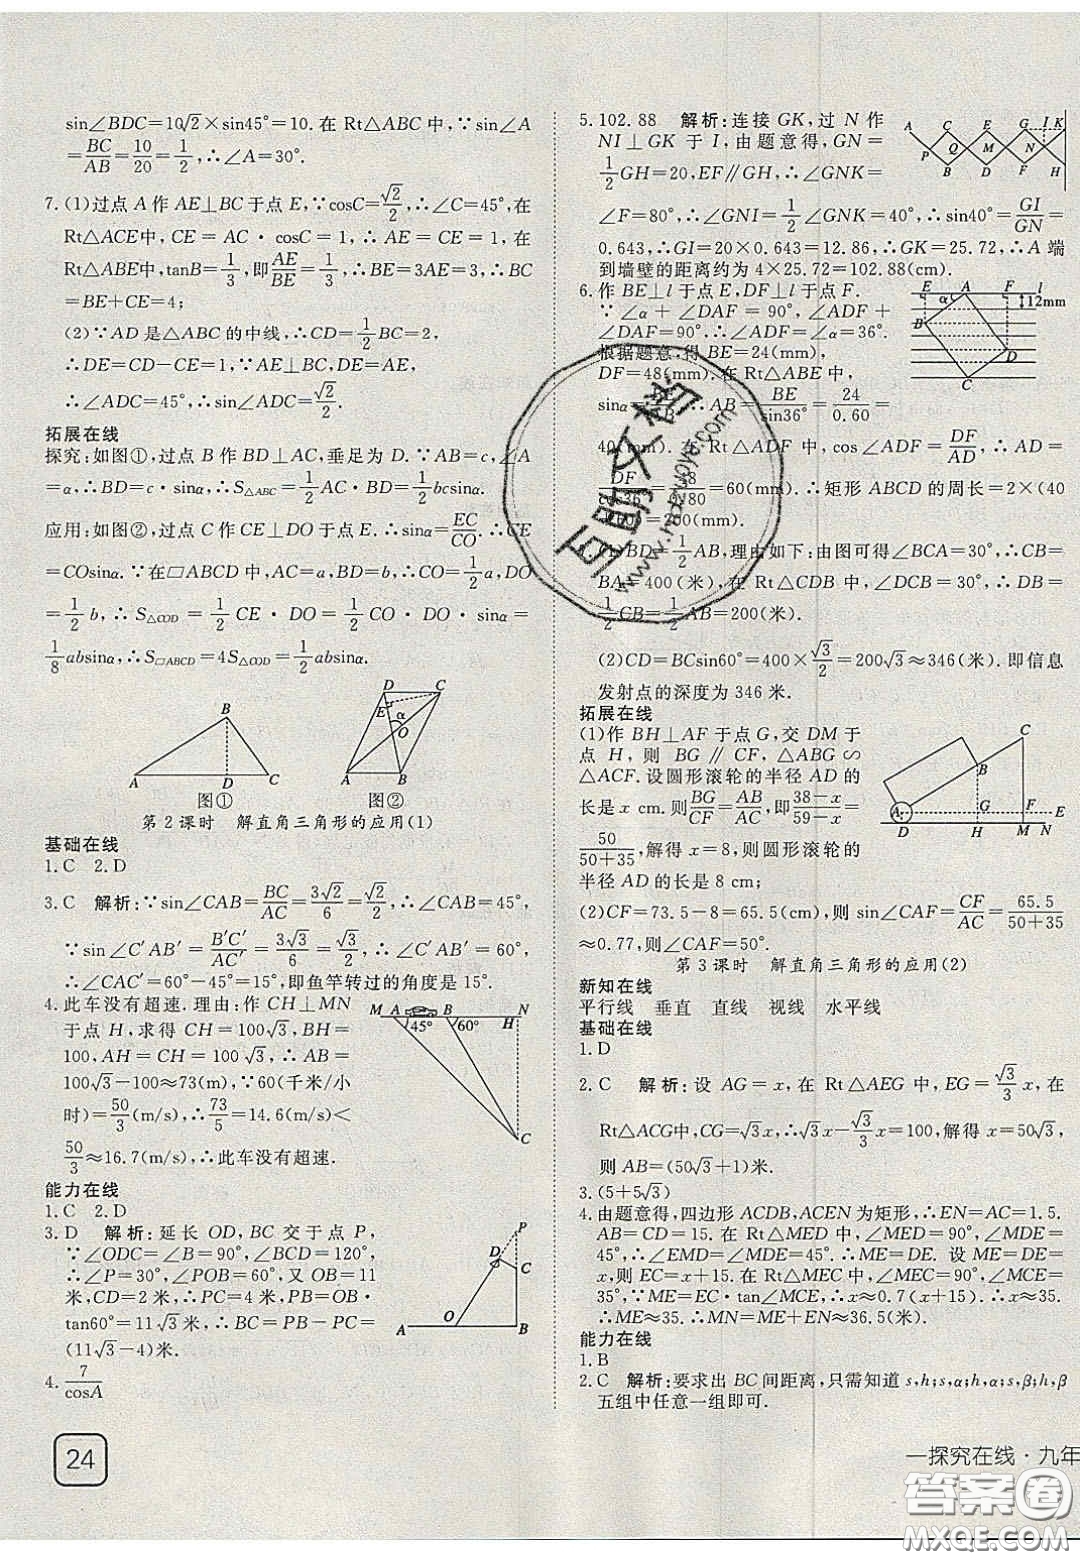 sin∠BDC=10√2×sin45°=10. 在 Rt△ABC 中,∵sin∠A
=BC/AB=10/20=1/2,∴∠A=30°.
7. (1)过点 A 作 AE⊥BC 于点 E,∵cosC=√2/2,∴∠C=45°,在
Rt△ACE中,CE = AC · cosC=1,∴ AE = CE = 1,在
Rt△ABE中,tanB=1/3,即AE/BE=1/3,∴BE=3AE=3,∴BC
=BE+CE=4;
(2)∵AD 是△ABC 的中线,∴CD=1/2BC=2,
∴DE=CD-CE=1,∴DE=AE,
∴∠ADC=45°,∴sin∠ADC=√2/2.
拓展在线
探究:如图①,过点 B 作 BD⊥AC,垂足为 D.∵AB=c,∠A
=α,∴BD=c·sinα,∴S△ABC=1/2AC·BD=1/2bcsinα.
应用:如图②,过点 C 作 CE⊥DO 于点 E,∴sinα=EC/CO.∴CE
=COsinα.∵在▱ABCD 中,AC=a,BD=b,∴CO=1/2a,DO
=1/2b,∴S△COD=1/2CE·DO=1/2CO·DO·sinα=
1/8absinα,∴S▱ABCD=4S△COD=1/2absinα.
B
A D C
图①
D C
E α
O
A B
图②
第 2 课时 解直角三角形的应用(1)
基础在线
1. C 2. D
3. C 解析:∵sin∠CAB=BC/AC=3√2/6=√2/2,∴∠CAB=45°,
∵sin∠C′AB′=B′C′/AC′=3√3/6=√3/2,∴∠C′AB′=60°,
∴∠CAC′=60°-45°=15°,即鱼竿转过的角度是 15°.
4. 此车没有超速. 理由:作 CH⊥MN
于点 H,求得 CH=100√3,BH=
100,AH=CH=100√3,∴AB=
100√3-100≈73(m),∵60(千米/小
时)=50/3(m/s),∴73/5=14.6(m/s)<
50/3≈16.7(m/s),∴此车没有超速.
M A B N
45° 60° H
C
能力在线
1. C 2. D
3. D 解析:延长 OD,BC 交于点 P,
∵∠ODC=∠B=90°,∠BCD=120°,
∴∠P=30°,∠POB=60°,又 OB=11
米,CD=2 米,∴PC=4 米,PB=OB·
tan60°=11√3 米,∴BC=PB-PC=
(11√3-4)米.
P
D
C
O
A B
4. 7/cosA
24
5. 102.88 解析:连接 GK,过 N 作
NI⊥GK 于 I,由题意得,GN=
1/2GH=20,EF∥GH,∴∠GNK=
∠F=80°,∴∠GNI=1/2∠GNK=40°,∴sin40°=GI/GN=
0.643,∴GI=20×0.643=12.86,∴GK=25.72,∴A 端
到墙壁的距离约为 4×25.72=102.88(cm).
A C E G I K
P Q M N
B D F H
6. 作 BE⊥l 于点 E,DF⊥l 于点 F.
∵∠α+∠DAF=90°,∠ADF+
∠DAF=90°,∴∠ADF=∠α=36°.
根据题意,得 BE=24(mm),
DF=48(mm). 在 Rt△ABE 中,
sinα=BE/AB,∴AB=BE/sin36°=24/0.60=
40(mm). 在 Rt△ADF 中,cos∠ADF=DF/AD,∴AD=
=60(mm),∴矩形 ABCD 的周长=2×(40
+60)=200(mm).
E A F l
α 12mm
B
D
C
(1)BD=1/2AB,理由如下:由图可得∠BCA=30°,∴CB=
BA=400(米),在 Rt△CDB 中,∠DCB=30°,∴DB=
1/2CB=1/2AB=200(米).
(2)CD=BCsin60°=400×√3/2=200√3≈346(米). 即信息
发射点的深度为 346 米.
拓展在线
(1)作 BH⊥AF 于点 G,交 DM 于
点 H,则 BG∥CF,△ABG∽
△ACF. 设圆形滚轮的半径 AD 的
长是 x cm. 则BG/CF=AB/AC,即38-x/59-x=
50/50+35,解得 x=8,则圆形滚轮的
半径 AD 的长是 8 cm;
C
B
A G F E
D H M N
(2)CF=73.5-8=65.5(cm),则 sin∠CAF=CF/AC=65.5/50+35
≈0.77,则∠CAF=50°.
第 3 课时 解直角三角形的应用(2)
新知在线
平行线 垂直 直线 视线 水平线
基础在线
1. D
2. C 解析:设 AG=x,在 Rt△AEG 中,EG=√3/3x,在
Rt△ACG中,CG=√3x,∴√3x-√3/3x=100,解得 x=50√3,
则 AB=(50√3+1)米.
3. (5+5√3)
4. 由题意得,四边形 ACDB,ACEN 为矩形,∴EN=AC=1.5.
AB=CD=15. 在 Rt△MED 中,∠MED=90°,∠MDE=
45°,∴∠EMD=∠MDE=45°,∴ME=DE. 设 ME=DE=
x,则 EC=x+15. 在 Rt△MEC 中,∠MEC=90°,∠MCE=
35°,∵ME=EC·tan∠MCE,∴x≈0.7(x+15),∴x≈35.
∴ME≈35,∴MN=ME+EN≈36.5(米).
能力在线
1. B
2. C 解析:要求出 BC 间距离,只需知道 s,h;s,α;h,α;s,β;h,β
五组中任意一组即可.
一探究在线·九年
互助文档
www.hdzuoye.com
答案圈
MXQE.COM